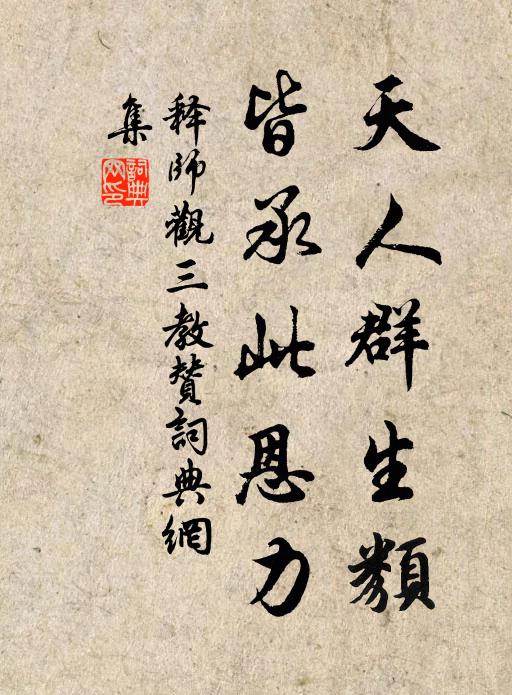 天人群生類
皆承此恩力
释師觀三教贊詞典網
集
詞典
网印